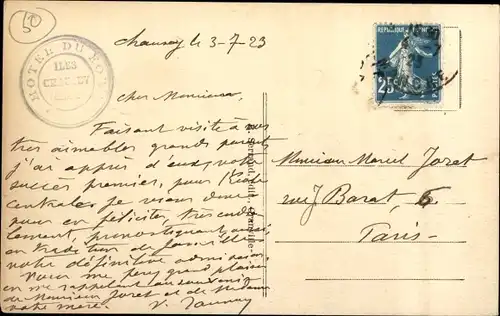 50
HOTEL DU PORT
ILES
CHAUSEY
Chausey le 3-7-23
REPUBLIQUE FRANÇAISE
25
Cher Monsieur
Faisant visite à vos
très aimables grands parents
j'ai appris d'eux, votre
succès premier, pour l'Ecole
Centrale, je viens donc
vous en féliciter, très cordia
lement, pronostiquant aussi
votre définitive admission.
Vous me ferez grand plaisir
en me rappelant au souvenir
de Monsieur Joret et de Madame
votre mère.
Monsieur Marcel Joret
rue J Barat, 6
Paris-